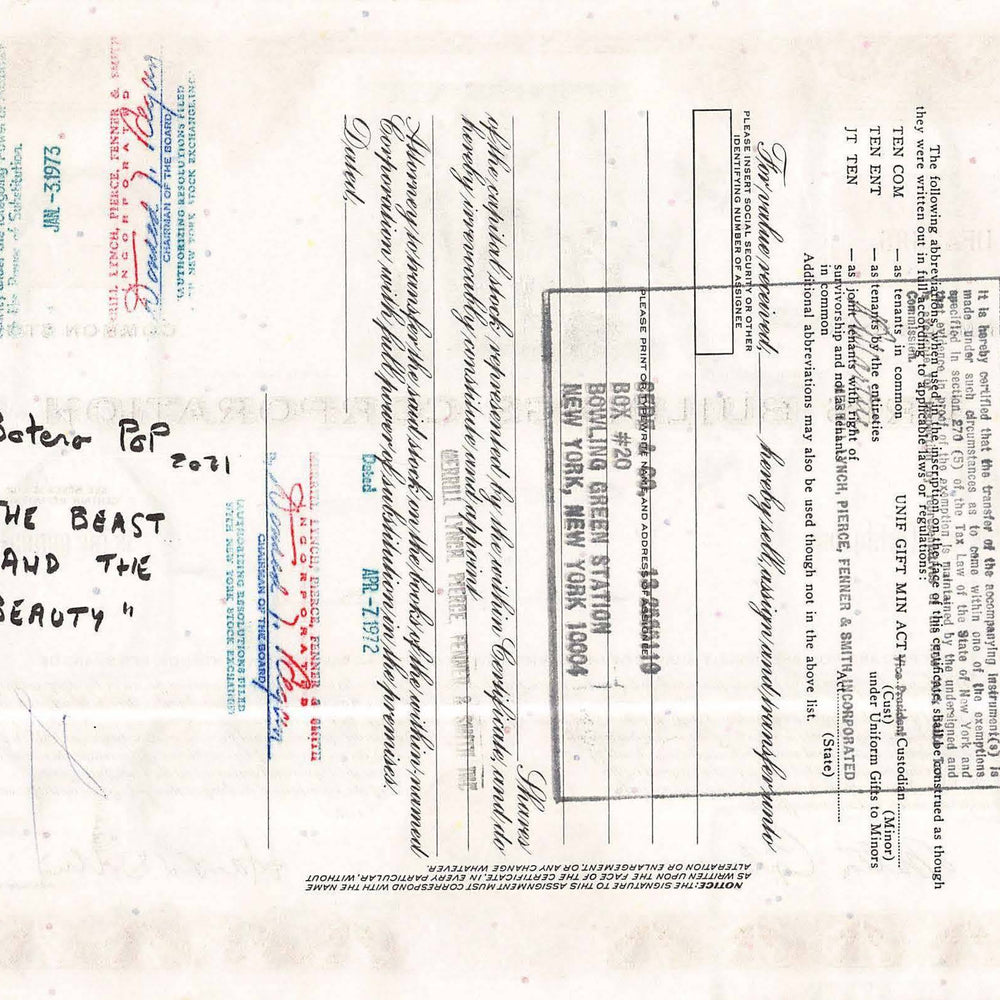 The following abbreviations, when used in the inscription on the face of this certificate, shall be construed as though
they were written out in full according to applicable laws or regulations:
TEN COM — as tenants in common
UNIF GIFT MIN ACT
Custodian
(Cust)
(Minor)
TEN ENT — as tenants by the entireties
under Uniform Gifts to Minors
JT TEN — as joint tenants with right of
survivorship and not as tenants
in common
Act
(State)
Additional abbreviations may also be used though not in the above list.
It is hereby certified that the transfer of the accompanying instrument(s) is
made under such circumstances as to come within one of the exemptions
specified in section 270 (5) of the Tax Law of the State of New York and
that evidence in proof of the exemption is maintained by the undersigned and
Commission.
LYNCH, PIERCE, FENNER & SMITH INCORPORATED
Vice President
For value received, hereby sell, assign and transfer unto
PLEASE INSERT SOCIAL SECURITY OR OTHER
IDENTIFYING NUMBER OF ASSIGNEE
PLEASE PRINT OR TYPEWRITE NAME AND ADDRESS OF ASSIGNEE
BOX #20
BOWLING GREEN STATION
NEW YORK, NEW YORK 10004
Shares
of the capital stock represented by the within Certificate, and do
hereby irrevocably constitute and appoint
MERRILL LYNCH PIERCE, FENNER & SMITH INC
Attorney to transfer the said stock on the books of the within-named
Corporation with full power of substitution in the premises.
Dated,
Dated APR -7 1972
MERRILL LYNCH, PIERCE, FENNER & SMITH
INCORPORATED
CHAIRMAN OF THE BOARD
AUTHORIZING RESOLUTIONS FILED
NEW YORK STOCK EXCHANGE
NOTICE: THE SIGNATURE TO THIS ASSIGNMENT MUST CORRESPOND WITH THE NAME
AS WRITTEN UPON THE FACE OF THE CERTIFICATE, IN EVERY PARTICULAR, WITHOUT
ALTERATION OR ENLARGEMENT, OR ANY CHANGE WHATEVER.
LYNCH, PIERCE, FENNER & SMITH
INCORPORATED
CHAIRMAN OF THE BOARD
AUTHORIZING RESOLUTIONS FILED
NEW YORK STOCK EXCHANGE, INC.
JAN -3 1973
Power of Substitution.
Botero POP
2021
THE BEAST
AND THE
BEAUTY"